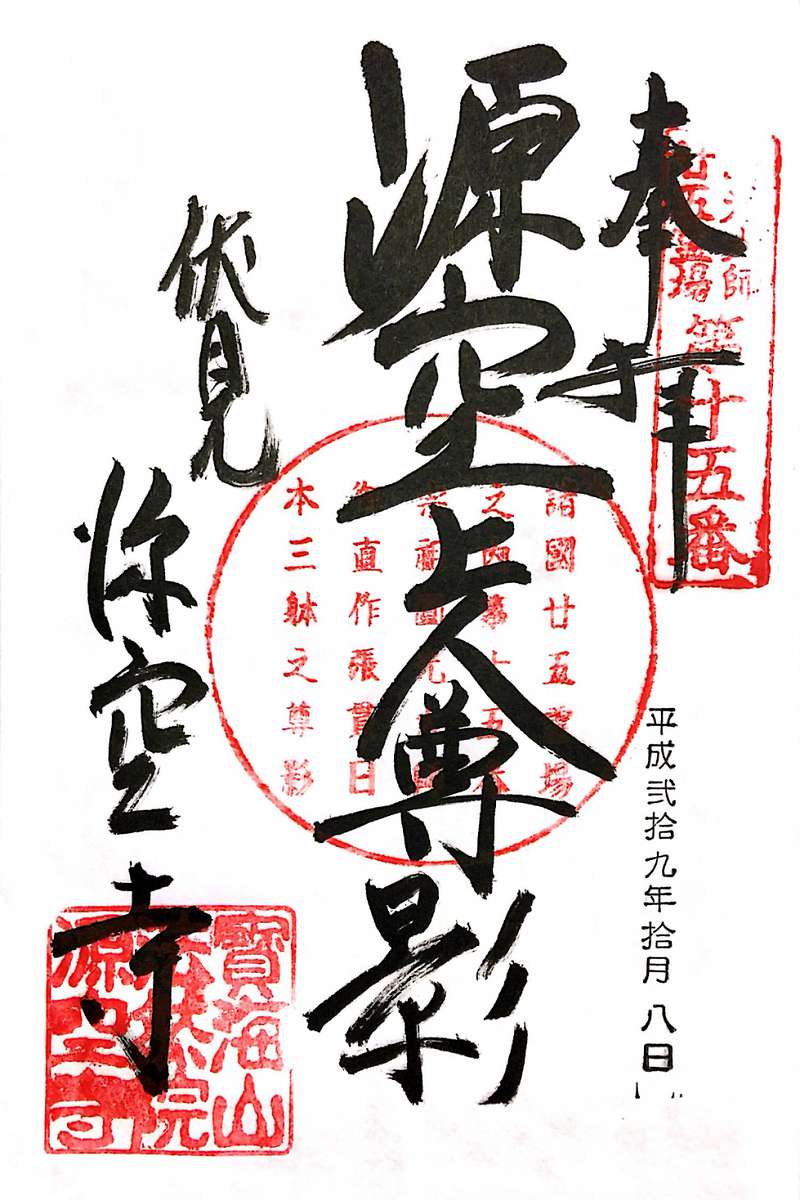 奉拝
第廿五番
平成弐拾九年拾月八日
源空上人尊影
諸國廿五霊場
直作張貫日
本三躰之尊影
伏見
源空寺
寶海山
源空寺